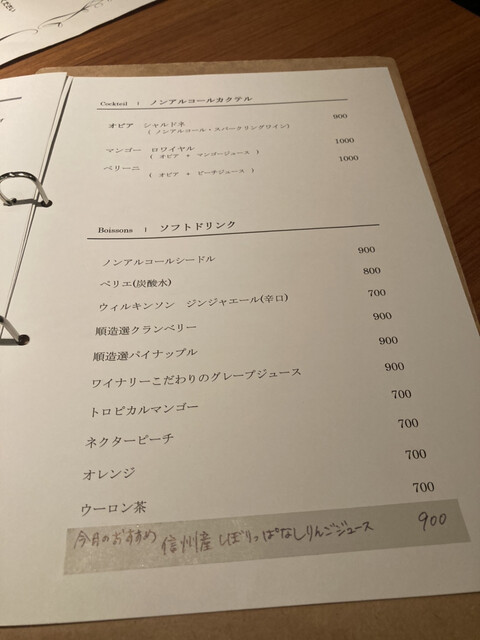 Cocktail | ノンアルコールカクテル
オピア シャルドネ 900
( ノンアルコール・スパークリングワイン)
マンゴー ロワイヤル 1000
( オピア + マンゴージュース )
ベリーニ 1000
( オピア + ピーチジュース )
Boissons | ソフトドリンク
ノンアルコールシードル 900
ペリエ(炭酸水) 800
ウィルキンソン ジンジャエール(辛口) 700
順造選クランベリー 900
順造選パイナップル 900
ワイナリーこだわりのグレープジュース 900
トロピカルマンゴー 700
ネクターピーチ 700
オレンジ 700
ウーロン茶 700
今日のおすすめ 信州産 しぼりっぱなしりんごジュース 900